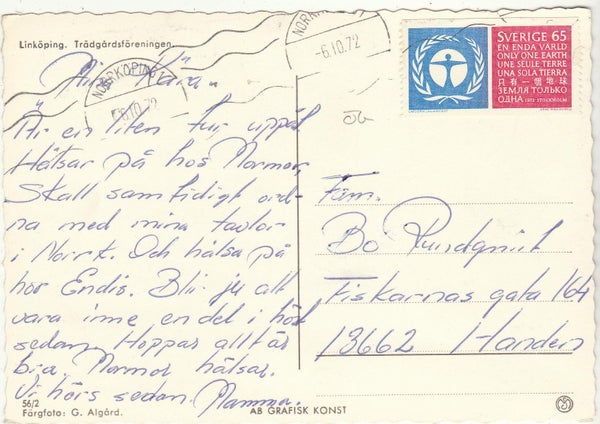 Linköping. Trädgårdsföreningen.
Mina Kära.
Är en liten tur uppåt
Hälsar på hos Mormor,
Skall samtidigt ord-
na med mina tavlor
i Norrk. Och hälsa på
hos Endis. Blir ju att
vara inne en del i höst
sedan. Hoppas allt är
bra. Mormor hälsar.
Vi hörs sedan. Mamma.
56/2
Färgfoto: G. Algård.
AB GRAFISK KONST
NORRKÖPING 1
-6.10.72
NORRKÖPING 1
-6.10.72
SVERIGE 65
EN ENDA VÄRLD
ONLY ONE EARTH
UNE SEULE TERRE
UNA SOLA TIERRA
只有一個地球
ЗЕМЛЯ ТОЛЬКО
ОДНА 1972 STOCKHOLM
Fam.
Bo Rundqvist
Fiskarnas gata 164
13662 Handen